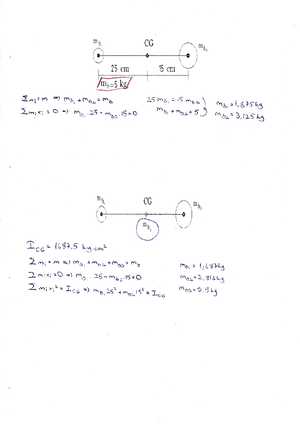 m_b₁ CG m_b₂
25 cm 15 cm
m_b=5 kg
Σmᵢ=m ⇒ m_b₁+m_b₂=m_b 25m_b₁=15m_b₂ } m_b₁=1,875kg
Σmᵢxᵢ=0 ⇒ m_b₁.25-m_b₂.15=0 m_b₁+m_b₂=5 } m_b₂=3,125kg
m_b₁ CG m_b₂
m_b₃
I_CG = 1687,5 kg.cm²
Σmᵢ=m ⇒ m_b₁+m_b₂+m_b₃=m_b m_b₁=1,687kg
Σmᵢxᵢ=0 ⇒ m_b₁.25-m_b₂.15=0 m_b₂=2,813kg
Σmᵢxᵢ²=I_CG ⇒ m_b₁25²+m_b₂15²=I_CG m_b₃=0,5kg